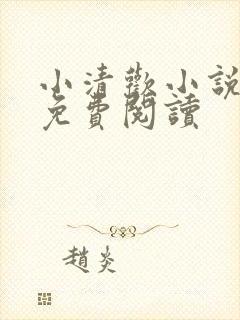 小清歡小說
免費閱讀
趙炎